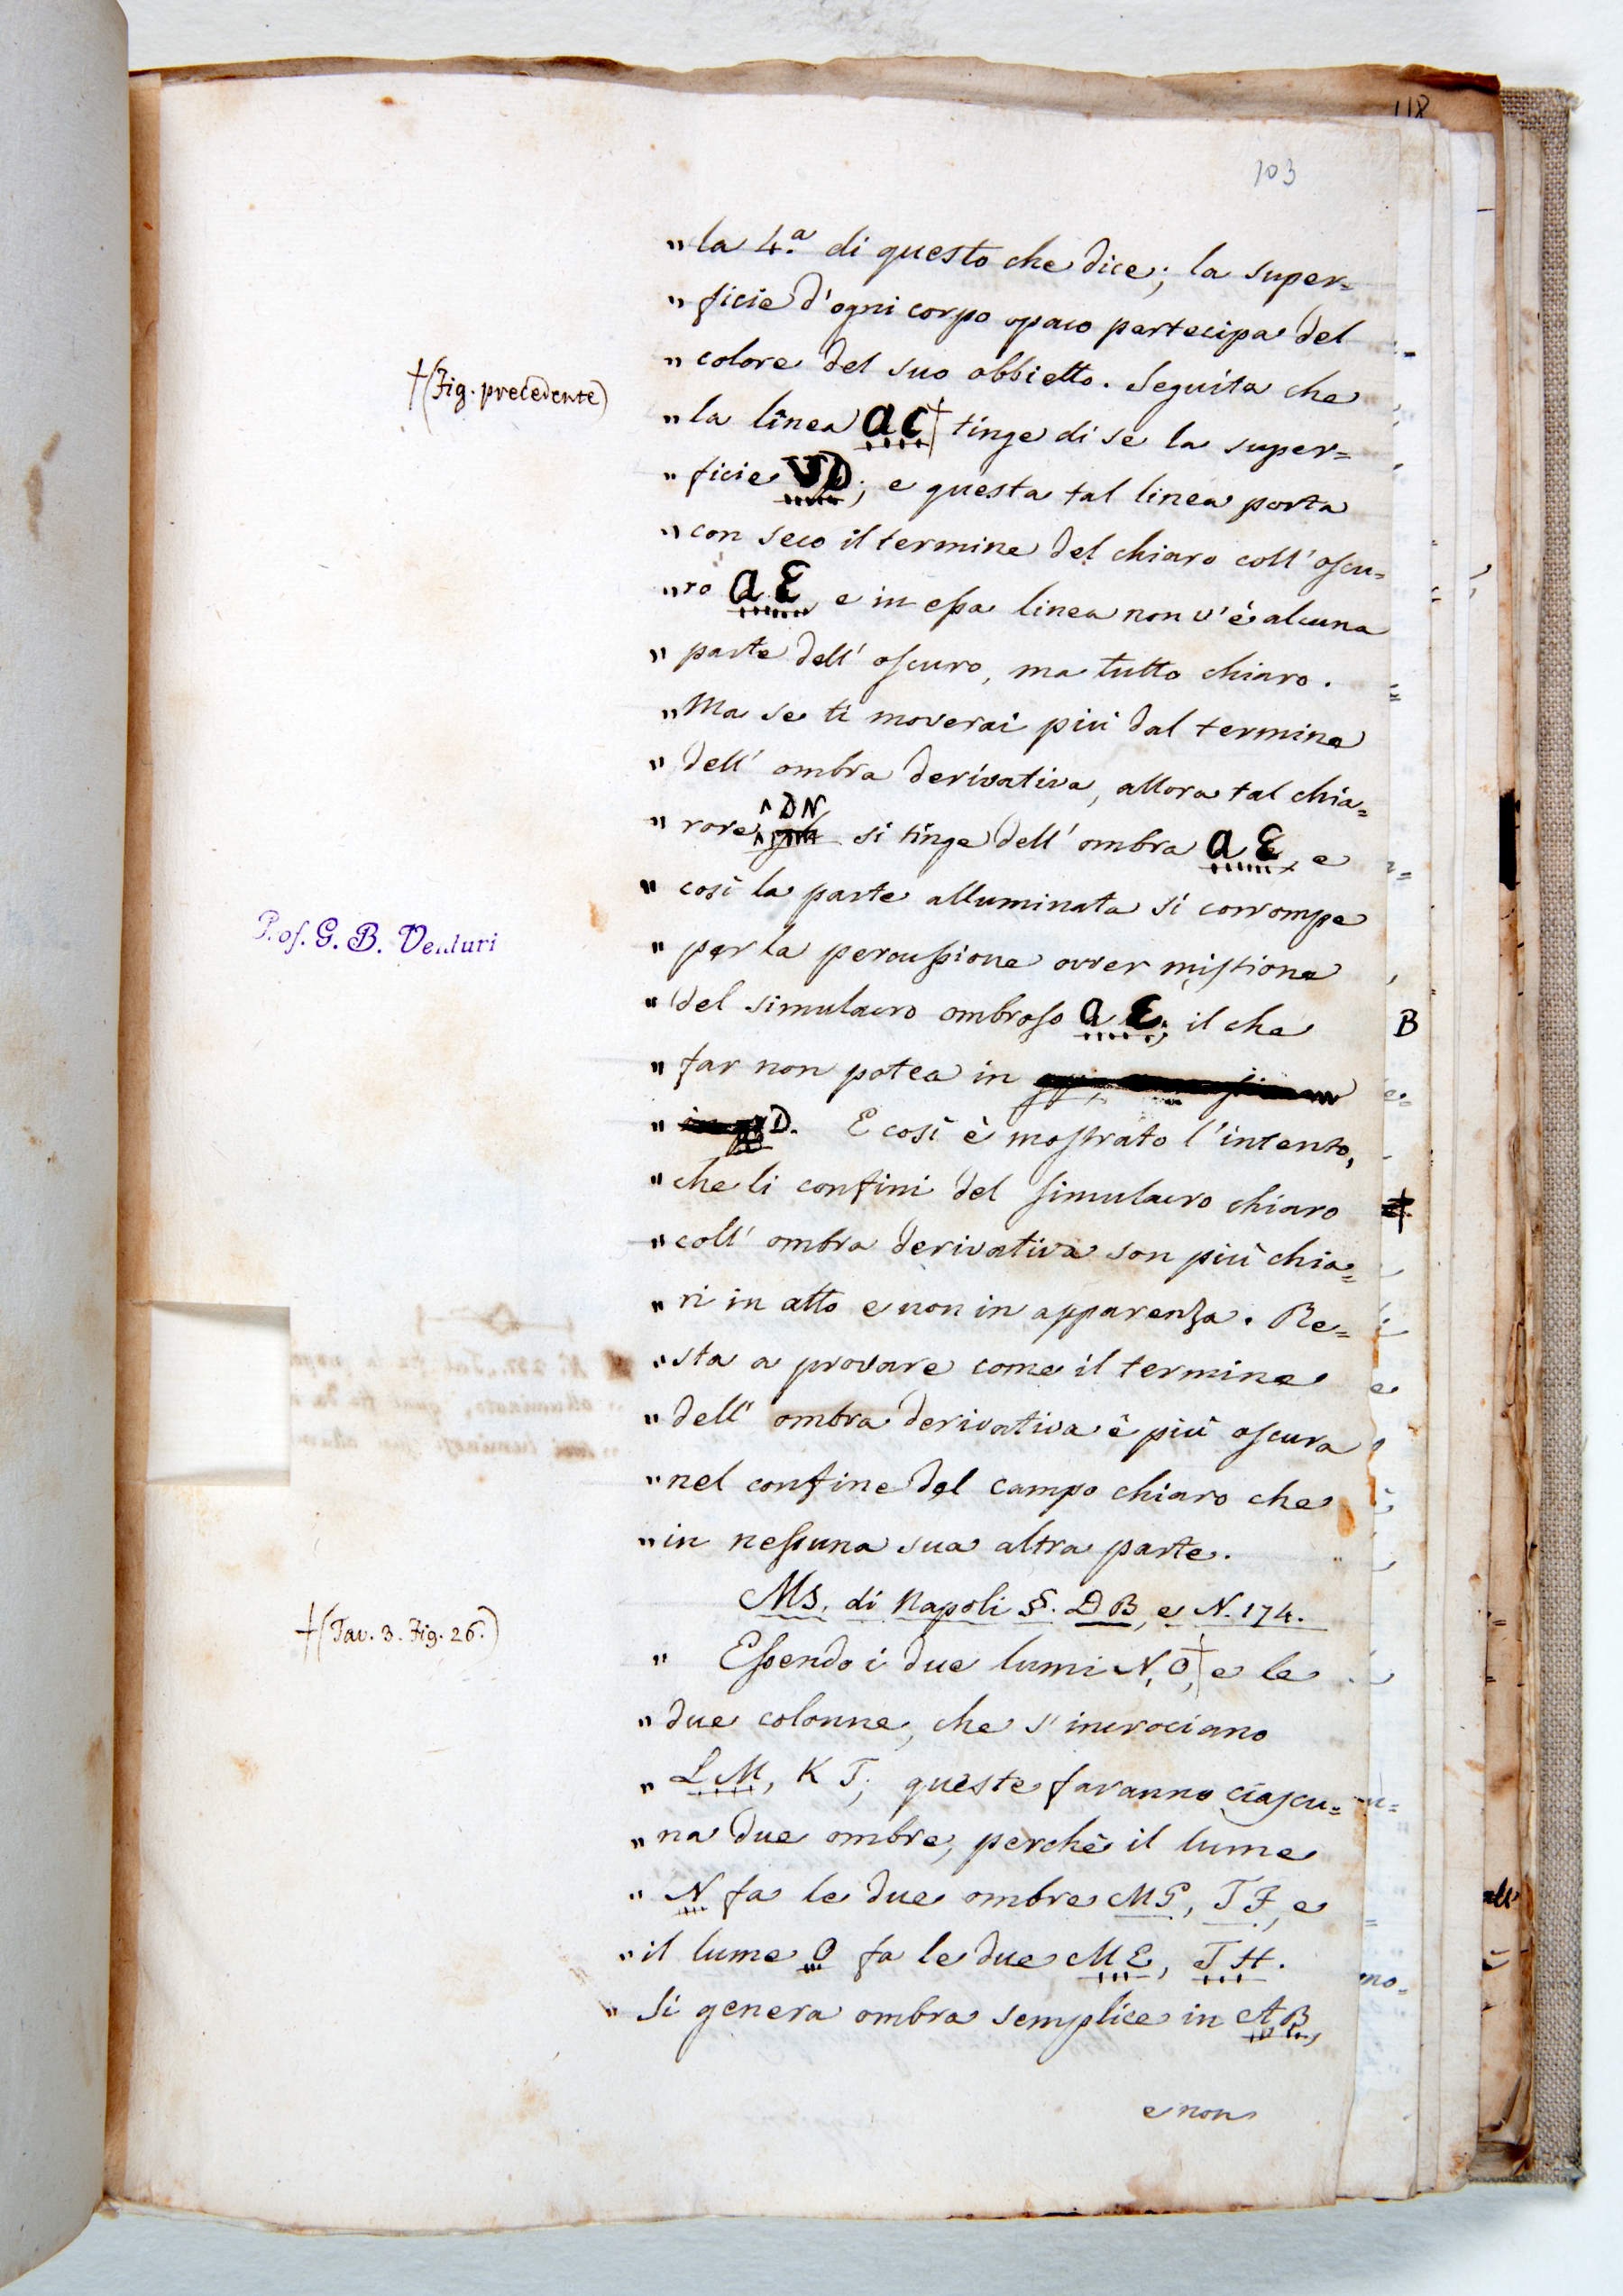 118
103
"la 4.a di questo che dice; la super=
"ficie d'ogni corpo opaco partecipa del
"colore del suo obbietto. Seguita che
†(Fig. precedente)
"la linea a c† tinge di se la super=
"ficie VD; e questa tal linea porta
"con seco il termine del chiaro coll'oscu=
"ro a E e in essa linea non v'è alcuna
"parte dell'oscuro, ma tutto chiaro.
"Ma se ti moverai più dal termine
"dell'ombra derivativa, allora tal chia=
"rore ^DN si tinge dell'ombra a E, e
"così la parte alluminata si corrompe
Prof. G. B. Venturi
"per la percussione ovver mistione
"del simulacro ombroso a E; il che
B
"far non potea in
"D. E così è mostrato l'intento,
"che li confini del simulacro chiaro
"coll'ombra derivativa son più chia=
"ri in atto e non in apparenza. Re=
"sta a provare come il termine
"dell'ombra derivativa è più oscura
"nel confine del campo chiaro che
"in nessuna sua altra parte.
Ms. di Napoli §. DB, e N. 174.
†(Tav. 3. Fig. 26.)
" Essendo i due lumi N, O,† e le
"due colonne, che s'incrociano
"L M, K T; queste faranno ciascu=
"na due ombre, perchè il lume
"N fa le due ombre MP, TF, e
"il lume O fa le due ME, TH.
"Si genera ombra semplice in AB,
e non